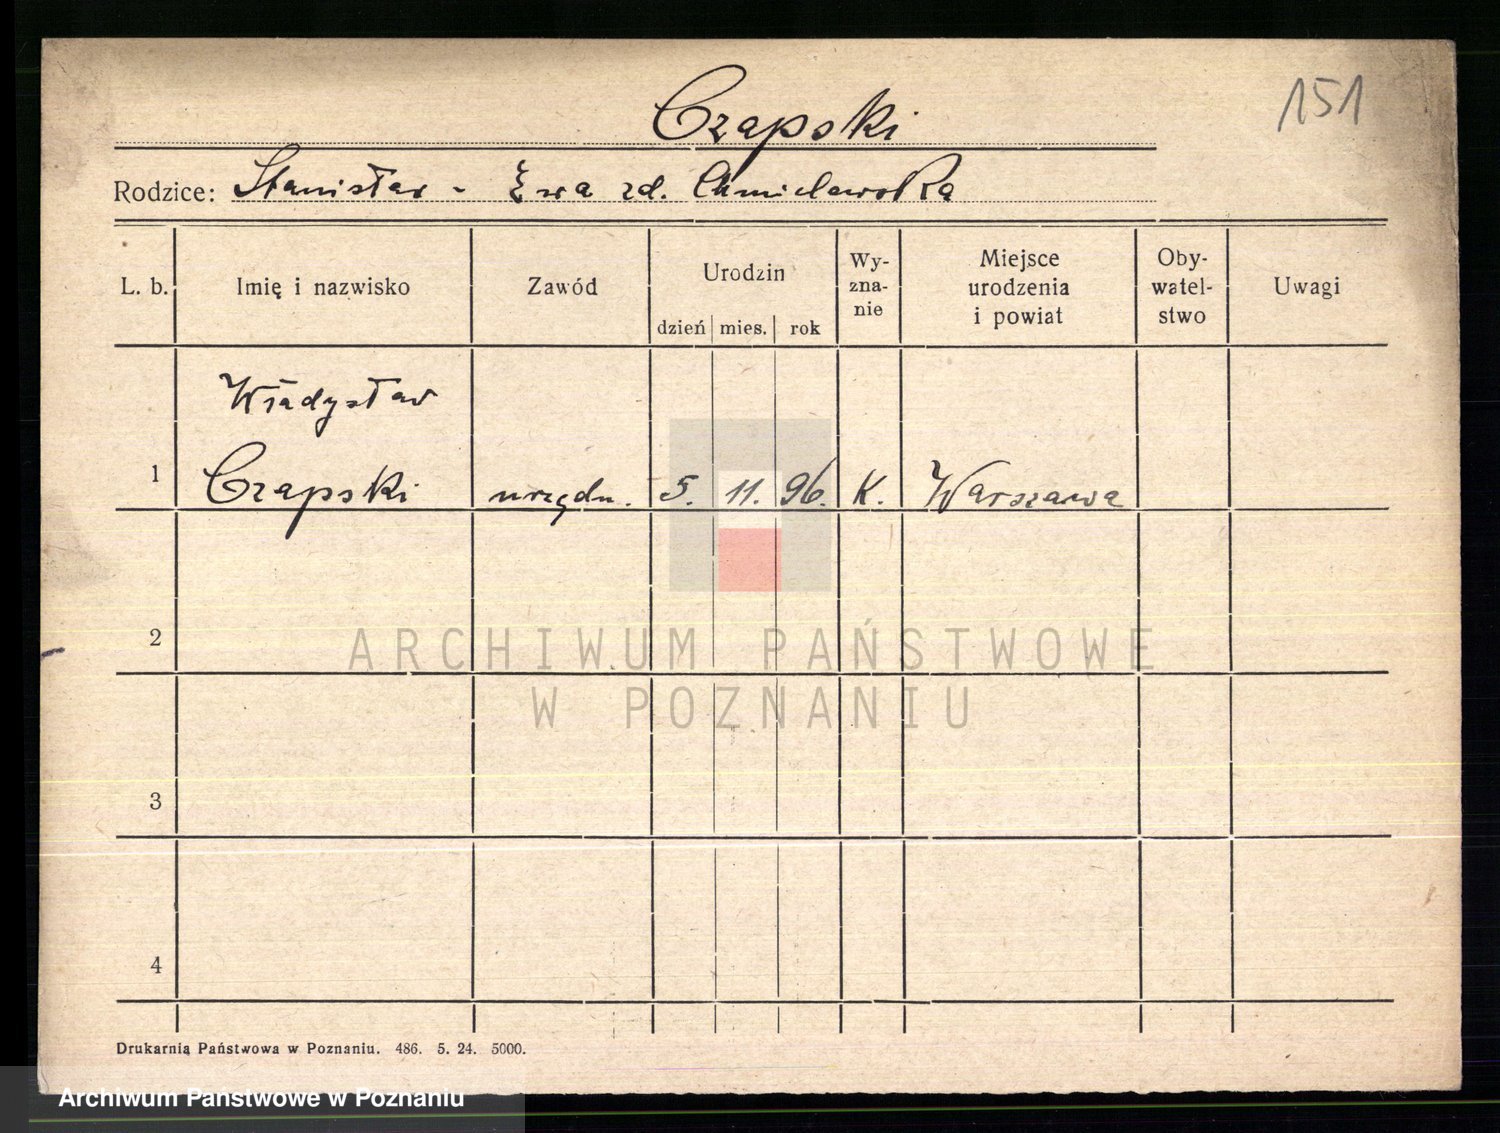 Czapski
151
Rodzice: Stanisław - Ewa zd. Chmielewska
L. b.
Imię i nazwisko
Zawód
Urodzin
dzień mies. rok
Wy-
zna-
nie
Miejsce
urodzenia
i powiat
Oby-
watel-
stwo
Uwagi
Władysław
1 Czapski urzędn. 5. 11. 96. K. Warszawa
2
ARCHIWUM PAŃSTWOWE
W POZNANIU
3
4
Drukarnią Państwowa w Poznaniu. 486. 5. 24. 5000.
Archiwum Państwowe w Poznaniu